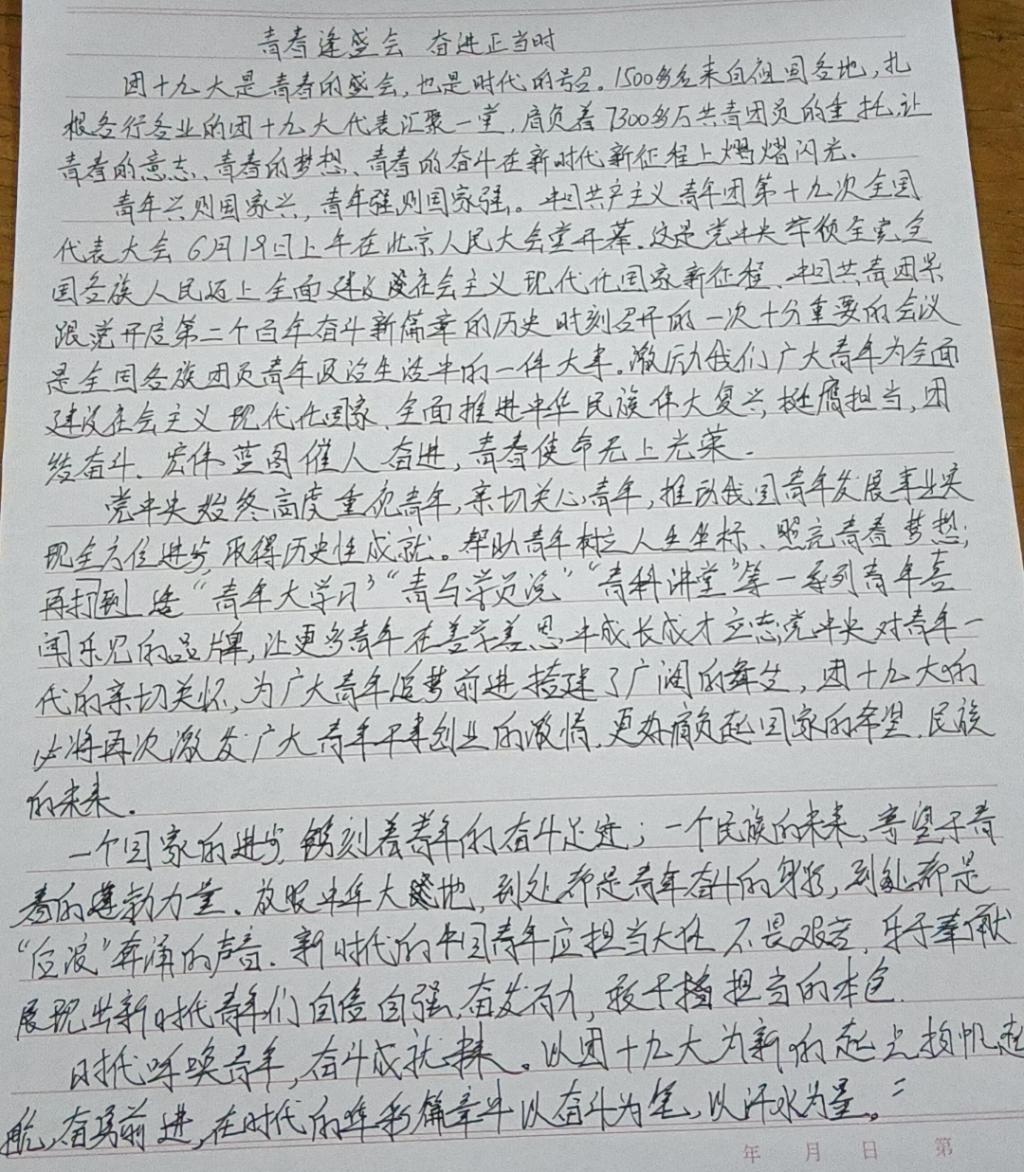 青春逢盛会 奋进正当时
团十九大是青春的盛会,也是时代的号召。1500多名来自祖国各地,扎
根各行各业的团十九大代表汇聚一堂,肩负着7300多万共青团员的重托,让
青春的意志、青春的梦想、青春的奋斗在新时代新征程上熠熠闪光。
青年兴则国家兴,青年强则国家强。中国共产主义青年团第十九次全国
代表大会6月19日上午在北京人民大会堂开幕。这是党中央带领全党全
国各族人民迈上全面建设社会主义现代化国家新征程、中国共青团紧
跟党开启第二个百年奋斗新篇章的历史时刻召开的一次十分重要的会议
是全国各族团员青年政治生活中的一件大事。激励我们广大青年为全面
建设社会主义现代化国家、全面推进中华民族伟大复兴,挺膺担当,团
结奋斗、宏伟蓝图催人奋进,青春使命无上光荣。
党中央始终高度重视青年,亲切关心青年,推动我国青年发展事业实
现全方位进步,取得历史性成就。帮助青年树立人生坐标、照亮青春梦想;
再打到造“青年大学习”“青马学员说”“青科讲堂”等一系列青年喜
闻乐见的品牌,让更多青年在善学善思中成长成才立志,党中央对青年一
代的亲切关怀,为广大青年追梦前进搭建了广阔的舞台,团十九大的
必将再次激发广大青年干事创业的激情,更好肩负起国家的希望、民族
的未来。
一个国家的进步,镌刻着青年的奋斗足迹;一个民族的未来,寄望于青
春的蓬勃力量。放眼中华大地,到处都是青年奋斗的身影,到处都是
“后浪”奔涌的声音。新时代的中国青年应担当大任 不畏艰苦,乐于奉献
展现出新时代青年们自信自强、奋发有为,敢于担当的本色。
时代呼唤青年,奋斗成就未来。以团十九大为新的起点扬帆起
航,奋勇前进,在时代的华彩篇章中以奋斗为笔,以汗水为墨。
年 月 日 第